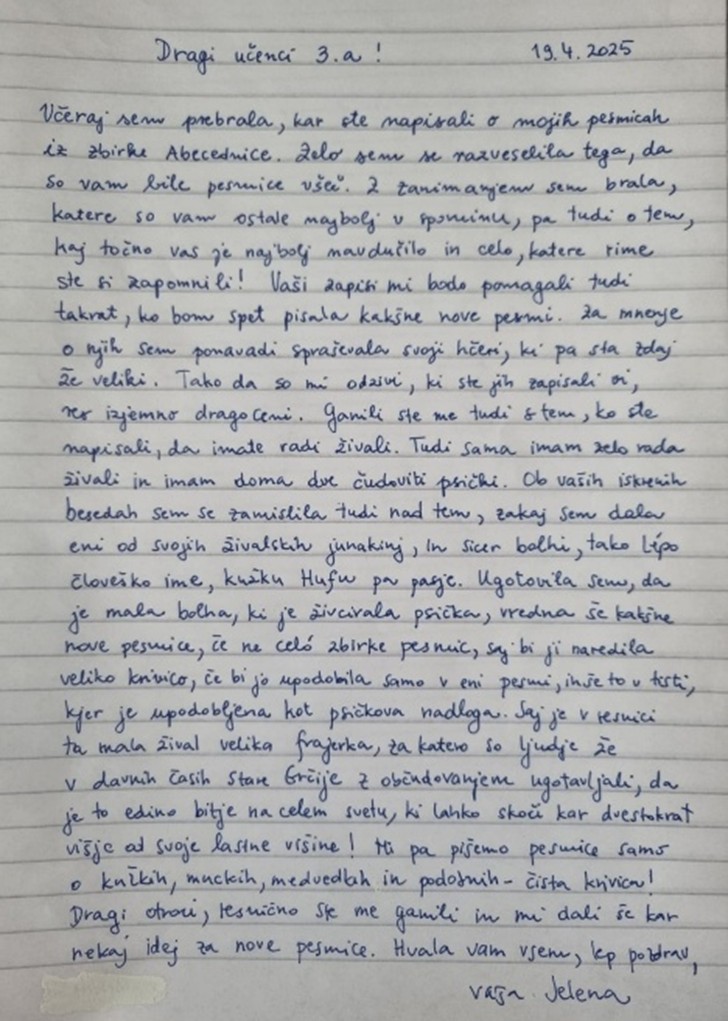 Dragi učenci 3.a! 19.4.2025
Včeraj sem prebrala, kar ste napisali o mojih pesmicah
iz zbirke Abecednice. Zelo sem se razveselila tega, da
so vam bile pesmice všeč. Z zanimanjem sem brala,
katere so vam ostale najbolj v spominu, pa tudi o tem,
kaj točno vas je najbolj navdušilo in celo, katere rime
ste si zapomnili! Vaši zapisi mi bodo pomagali tudi
takrat, ko bom spet pisala kakšne nove pesmi. Za mnenje
o njih sem ponavadi spraševala svoji hčeri, ki pa sta zdaj
že veliki. Tako da so mi odzivi, ki ste jih zapisali vi,
res izjemno dragoceni. Ganili ste me tudi s tem, ko ste
napisali, da imate radi živali. Tudi sama imam zelo rada
živali in imam doma dve čudoviti psički. Ob vaših iskrenih
besedah sem se zamislila tudi nad tem, zakaj sem dala
eni od svojih živalskih junakinj, in sicer bolhi, tako lépo
človeško ime, kužku Hufu pa pasje. Ugotovila sem, da
je mala bolha, ki je živcirala psička, vredna še kakšne
nove pesmice, če ne celó zbirke pesmic, saj bi ji naredila
veliko krivico, če bi jo upodobila samo v eni pesmi, in še to v tisti,
kjer je upodobljena kot psičkova nadloga. Saj je v resnici
ta mala žival velika frajerka, za katero so ljudje že
v davnih časih Stare Grčije z občudovanjem ugotavljali, da
je to edino bitje na celem svetu, ki lahko skoči kar dvestokrat
višje od svoje lastne višine! Mi pa pišemo pesmice samo
o kužkih, muckih, medvedkih in podobnih - čista krivica!
Dragi otroci, resnično ste me ganili in mi dali še kar
nekaj idej za nove pesmice. Hvala vam vsem, lep pozdrav,
vaša Jelena